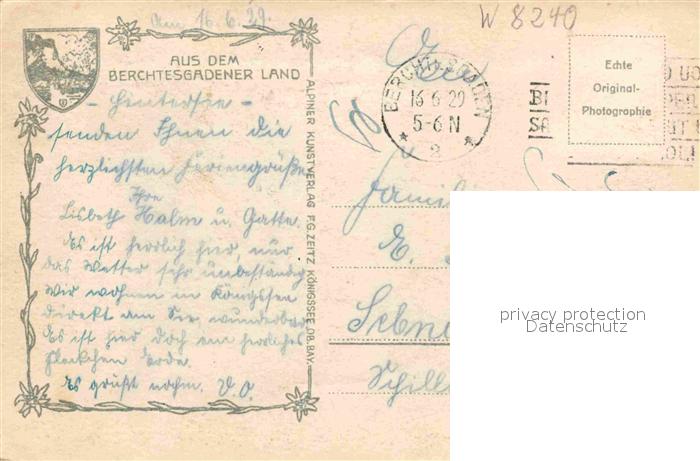 Am 16.6.29.
W 8240
AUS DEM
BERCHTESGADENER LAND
- Hintersee -
senden Ihnen die
herzlichsten Feriengrüße
Ihre
Lisbeth Halm u. Gatte.
Es ist herrlich hier, nur
das Wetter sehr unbeständig
Wir wohnen in Königssee
direkt am See, wunderbar
Es ist hier doch ein herrliches
Fleckchen Erde.
Es grüßt nochm. D.O.
ALPINER KUNSTVERLAG F.G. ZEITZ KÖNIGSSEE OB. BAY.
BERCHTESGADEN
16 6 29
5-6 N
Echte
Original-
Photographie
Famili
E.
Sebni
Schill
privacy protection
Datenschutz